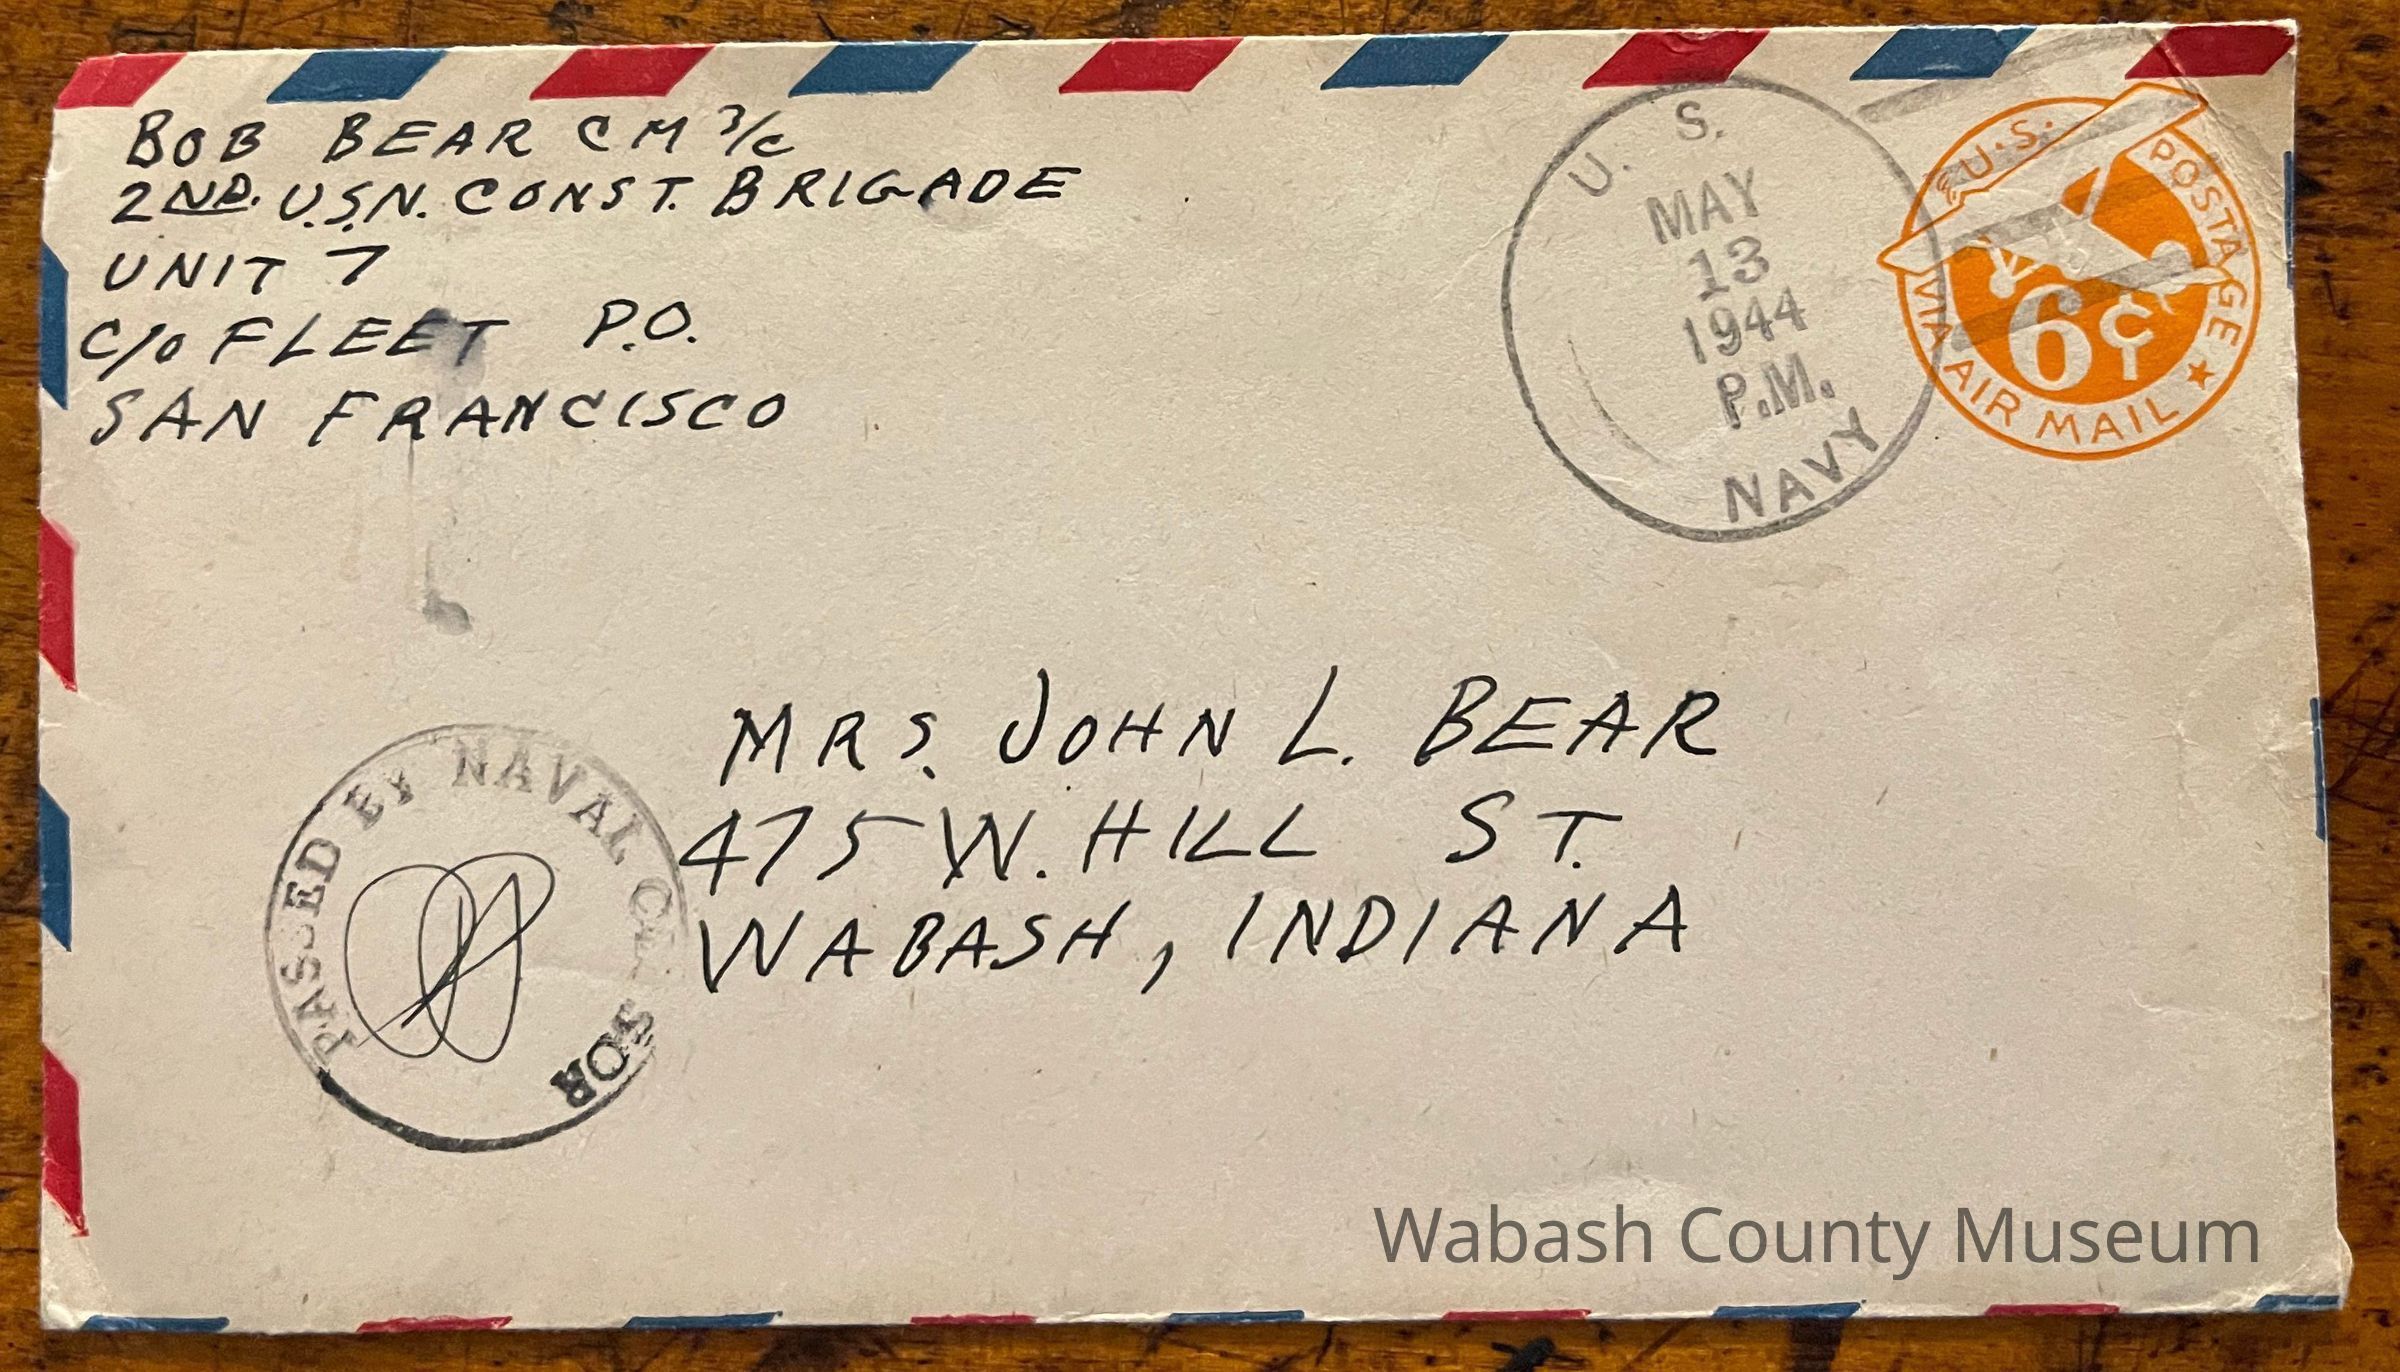 BOB BEAR CM 3/c
2ND. U.S.N. CONST. BRIGADE
UNIT 7
C/O FLEET P.O.
SAN FRANCISCO
U. S.
MAY
13
1944
P.M.
NAVY
U.S. POSTAGE
6¢
VIA AIR MAIL
MRS. JOHN L. BEAR
475 W. HILL ST.
WABASH, INDIANA
PASSED BY NAVAL CENSOR
Wabash County Museum